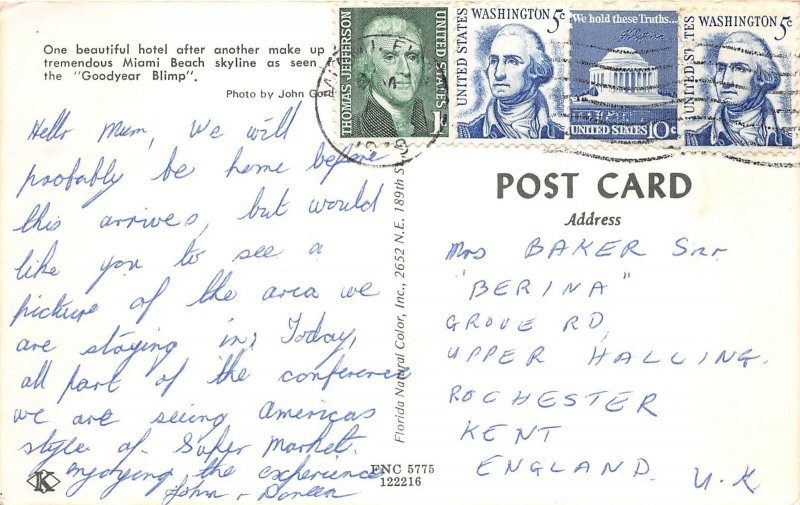 One beautiful hotel after another make up
tremendous Miami Beach skyline as seen
the "Goodyear Blimp".
Photo by John
THOMAS JEFFERSON
UNITED STATES
1¢
WASHINGTON 5c
UNITED STATES
We hold these Truths...
UNITED STATES 10c
WASHINGTON 5c
UNITED STATES
Hello Mum, We will
probably be home before
this arrives, but would
like you to see a
picture of the area we
are staying in; Today,
all part of the conference
we are seeing Americas
style of Super Market.
enjoying the experience
John + Doreen
K
Florida Natural Color, Inc., 2652 N.E. 189th St.
FNC 5775
122216
POST CARD
Address
Mrs BAKER Snr.
"BERINA"
GROVE RD,
UPPER HALLING.
ROCHESTER
KENT
ENGLAND. U.K